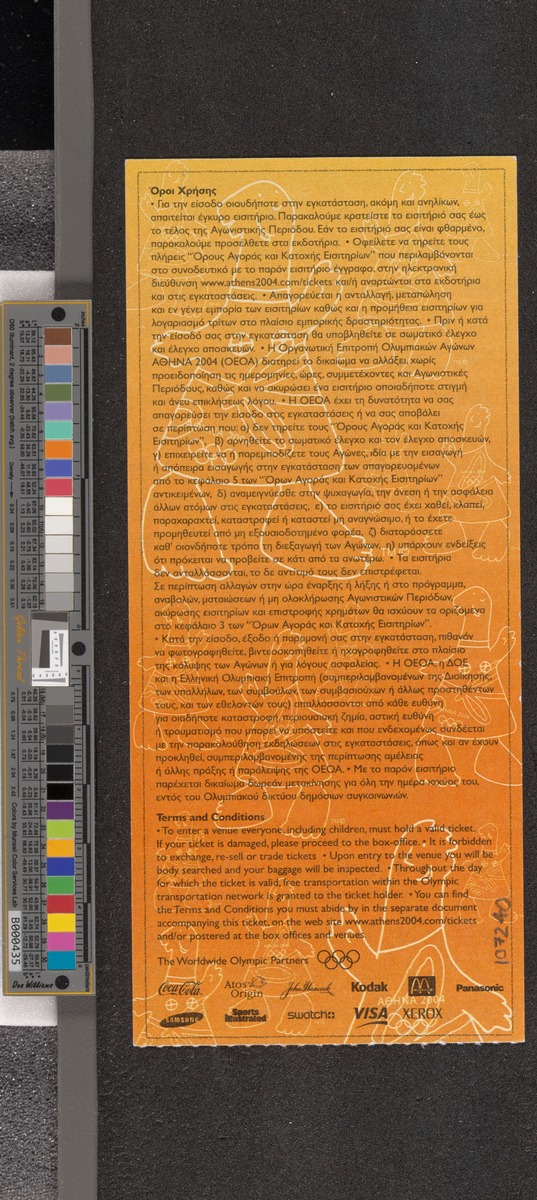 Όροι Χρήσης
• Για την είσοδο οιουδήποτε στην εγκατάσταση, ακόμη και ανηλίκων,
απαιτείται έγκυρο εισιτήριο. Παρακαλούμε κρατείστε το εισιτήριό σας έως
το τέλος της Αγωνιστικής Περιόδου. Εάν το εισιτήριό σας είναι φθαρμένο,
παρακαλούμε προσέλθετε στα εκδοτήρια. • Οφείλετε να τηρείτε τους
πλήρεις "Όρους Αγοράς και Κατοχής Εισιτηρίων" που περιλαμβάνονται
στο συνοδευτικό με το παρόν εισιτήριο έγγραφο, στην ηλεκτρονική
διεύθυνση www.athens2004.com/tickets και/ή αναρτώνται στα εκδοτήρια
και στις εγκαταστάσεις. • Απαγορεύεται η ανταλλαγή, μεταπώληση
και εν γένει εμπορία των εισιτηρίων καθώς και η προμήθεια εισιτηρίων για
λογαριασμό τρίτων στο πλαίσιο εμπορικής δραστηριότητας. • Πριν ή κατά
την είσοδό σας στην εγκατάσταση θα υποβληθείτε σε σωματικό έλεγχο
και έλεγχο αποσκευών. • Η Οργανωτική Επιτροπή Ολυμπιακών Αγώνων
ΑΘΗΝΑ 2004 (ΟΕΟΑ) διατηρεί το δικαίωμα να αλλάξει, χωρίς
προειδοποίηση τις ημερομηνίες, ώρες, συμμετέχοντες και Αγωνιστικές
Περιόδους, καθώς και να ακυρώσει ένα εισιτήριο οποιαδήποτε στιγμή
και άνευ επικλήσεως λόγου. • Η ΟΕΟΑ έχει τη δυνατότητα να σας
απαγορεύσει την είσοδο στις εγκαταστάσεις ή να σας αποβάλει
σε περίπτωση που: α) δεν τηρείτε τους "Όρους Αγοράς και Κατοχής
Εισιτηρίων", β) αρνηθείτε το σωματικό έλεγχο και τον έλεγχο αποσκευών,
γ) επιχειρείτε να ή παρεμποδίζετε τους Αγώνες, ιδία με την εισαγωγή
ή απόπειρα εισαγωγής στην εγκατάσταση των απαγορευομένων
από το κεφάλαιο 5 των "Όρων Αγοράς και Κατοχής Εισιτηρίων"
αντικειμένων, δ) αναμειγνύεσθε στην ψυχαγωγία, την άνεση ή την ασφάλεια
άλλων ατόμων στις εγκαταστάσεις, ε) το εισιτήριό σας έχει χαθεί, κλαπεί,
παραχαραχτεί, καταστραφεί ή καταστεί μη αναγνώσιμο, ή το έχετε
προμηθευτεί από μη εξουσιοδοτημένο φορέα, ζ) διαταράσσετε
καθ' οιονδήποτε τρόπο τη διεξαγωγή των Αγώνων, η) υπάρχουν ενδείξεις
ότι πρόκειται να προβείτε σε κάτι από τα ανωτέρω. • Τα εισιτήρια
δεν ανταλλάσσονται, το δε αντίτιμό τους δεν επιστρέφεται.
Σε περίπτωση αλλαγών στην ώρα έναρξης ή λήξης ή στο πρόγραμμα,
αναβολών, ματαιώσεων ή μη ολοκλήρωσης Αγωνιστικών Περιόδων,
ακύρωσης εισιτηρίων και επιστροφής χρημάτων θα ισχύουν τα οριζόμενα
στο κεφάλαιο 3 των "Όρων Αγοράς και Κατοχής Εισιτηρίων".
• Κατά την είσοδο, έξοδο ή παραμονή σας στην εγκατάσταση, πιθανόν
να φωτογραφηθείτε, βιντεοσκοπηθείτε ή ηχογραφηθείτε στο πλαίσιο
της κάλυψης των Αγώνων ή για λόγους ασφαλείας. • Η ΟΕΟΑ, η ΔΟΕ
και η Ελληνική Ολυμπιακή Επιτροπή (συμπεριλαμβανομένων της Διοίκησης,
των υπαλλήλων, των συμβούλων, των συμβασιούχων ή άλλως προστηθέντων
τους, και των εθελοντών τους) απαλλάσσονται από κάθε ευθύνη
για οιαδήποτε καταστροφή, περιουσιακή ζημία, αστική ευθύνη
ή τραυματισμό που μπορεί να υποστείτε και που ενδεχομένως συνδέεται
με την παρακολούθηση εκδηλώσεων στις εγκαταστάσεις, όπως και αν έχουν
προκληθεί, συμπεριλαμβανομένης της περίπτωσης αμέλειας
ή άλλης πράξης ή παράλειψης της ΟΕΟΑ. • Με το παρόν εισιτήριο
παρέχεται δικαίωμα δωρεάν μετακίνησης για όλη την ημέρα ισχύος του,
εντός του Ολυμπιακού δικτύου δημόσιων συγκοινωνιών.
Terms and Conditions
• To enter a venue everyone, including children, must hold a valid ticket.
If your ticket is damaged, please proceed to the box-office. • It is forbidden
to exchange, re-sell or trade tickets • Upon entry to the venue you will be
body searched and your baggage will be inspected. • Throughout the day
for which the ticket is valid, free transportation within the Olympic
transportation network is granted to the ticket holder. • You can find
the Terms and Conditions you must abide by in the separate document
accompanying this ticket, on the web site www.athens2004.com/tickets
and/or posted at the box offices and venues.
107240
The Worldwide Olympic Partners
Coca-Cola Atos Origin John Hancock Kodak Panasonic
ΑΘΗΝΑ 2004
SAMSUNG Sports Illustrated swatch VISA XEROX
Golden Thread
Colors by Munsell Color Services Lab
B000435
Don Williams